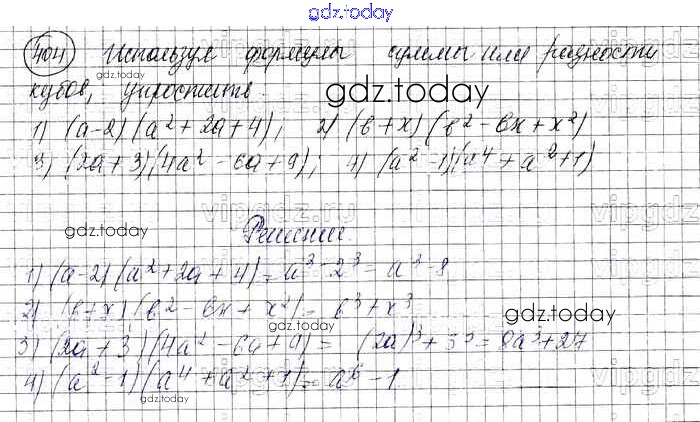 gdz.today
404 Используя формулы суммы или разности
gdz.today
кубов, упростите.
gdz.today
1) (a-2)(a²+2a+4); 2) (в+x)(в²-вx+x²)
3) (2a+3)(4a²-6a+9); 4) (a²-1)(a⁴+a²+1)
vipgdz.ru
gdz.today
Решение.
1) (a-2)(a²+2a+4)=a³-2³=a³-8
2) (в+x)(в²-вx+x²)=в³+x³
gdz.today
gdz.today
3) (2a+3)(4a²-6a+9)=(2a)³+3³=8a³+27
4) (a²-1)(a⁴+a²+1)=a⁶-1
gdz.today